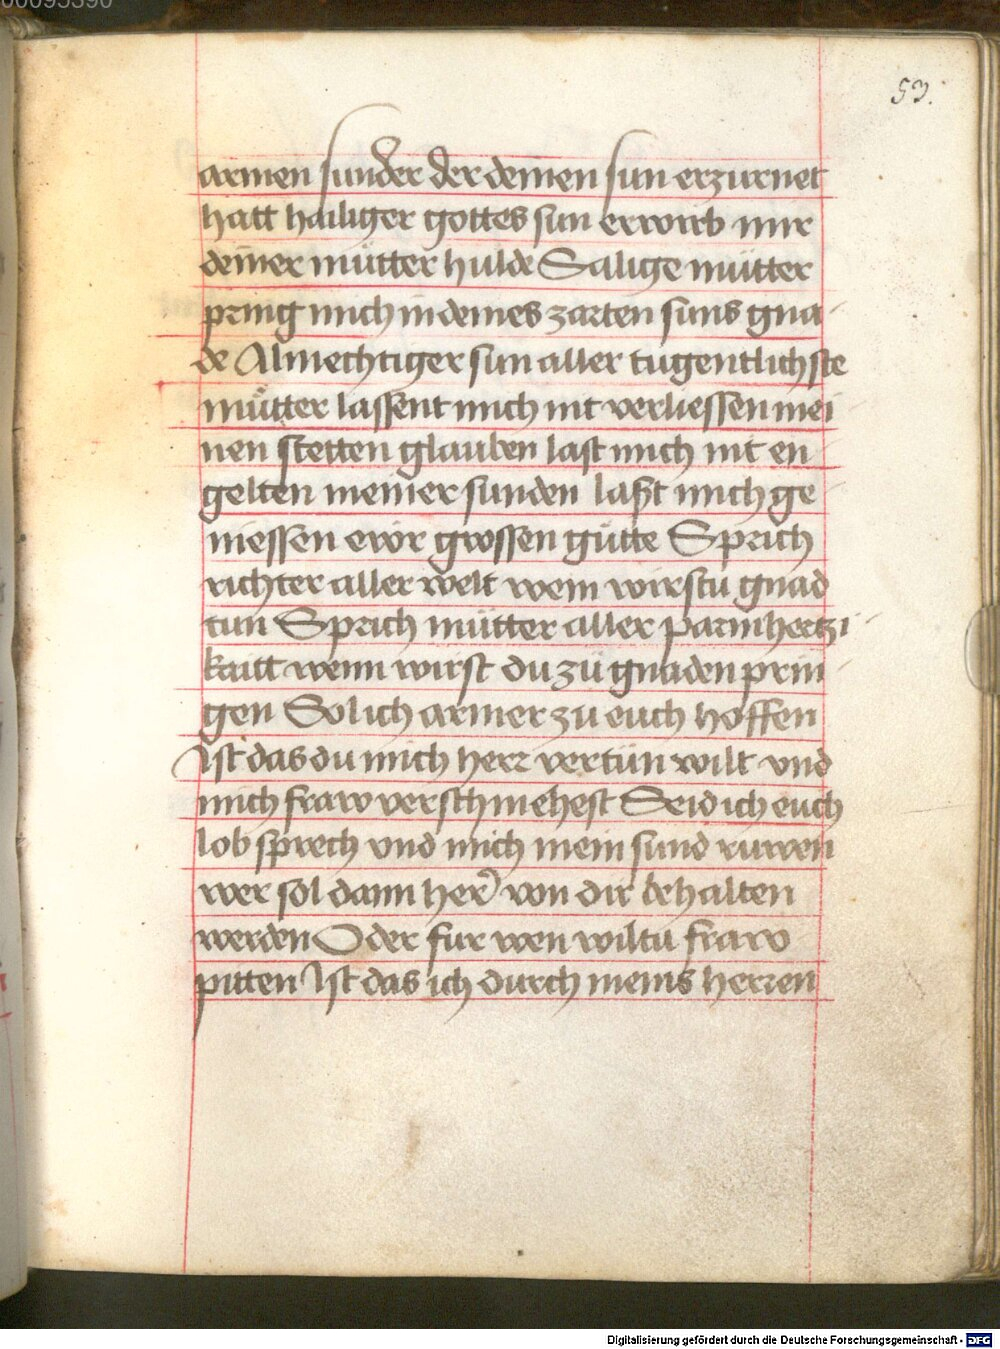 00095390
53.
armen sunder der deinen sun erzurnet
hatt hailiger gottes sun erwirb mir
deiner mütter hulde Salige mütter
pring mich in deines zarten suns gna
de Almechtiger sun aller tugentlichste
mütter lassent mich nit verliessen mei
nen stetten glauben last mich nit en
gelten meiner sunden last mich ge
niessen ewr grossen gütte Sprich
richter aller welt wem wirstu gnad
tun Sprich mütter aller parmhertzi
kaitt wenn wirst du zü gnaden prin
gen So ich armer zu euch hoffen
Ist das du mich herr vertün wilt vnd
mich fraw verschmehest Seid ich euch
lob sprech vnd mich mein sund ruwen
wer sol dann her von dir behalten
werden Oder fur wen wiltu fraw
pitten Ist das ich durch meins herren
Digitalisierung gefördert durch die Deutsche Forschungsgemeinschaft - DFG